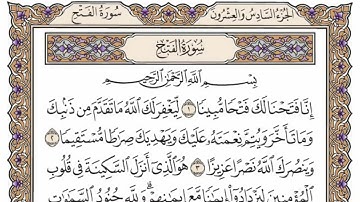 سُورَةُ الفَتْحِ
الجُزْءُ السَّادِسُ وَالعِشْرُونَ
سُورَةُ الفَتْحِ
بِسْمِ اللَّهِ الرَّحْمَٰنِ الرَّحِيمِ
إِنَّا فَتَحْنَا لَكَ فَتْحًا مُّبِينًا ١ لِّيَغْفِرَ لَكَ اللَّهُ مَا تَقَدَّمَ مِن ذَنۢبِكَ
وَمَا تَأَخَّرَ وَيُتِمَّ نِعْمَتَهُۥ عَلَيْكَ وَيَهْدِيَكَ صِرَٰطًا مُّسْتَقِيمًا ٢
وَيَنصُرَكَ اللَّهُ نَصْرًا عَزِيزًا ٣ هُوَ الَّذِىٓ أَنزَلَ السَّكِينَةَ فِى قُلُوبِ
الْمُؤْمِنِينَ لِيَزْدَادُوٓا۟ إِيمَٰنًا مَّعَ إِيمَٰنِهِمْ ۗ وَلِلَّهِ جُنُودُ السَّمَٰوَٰتِ